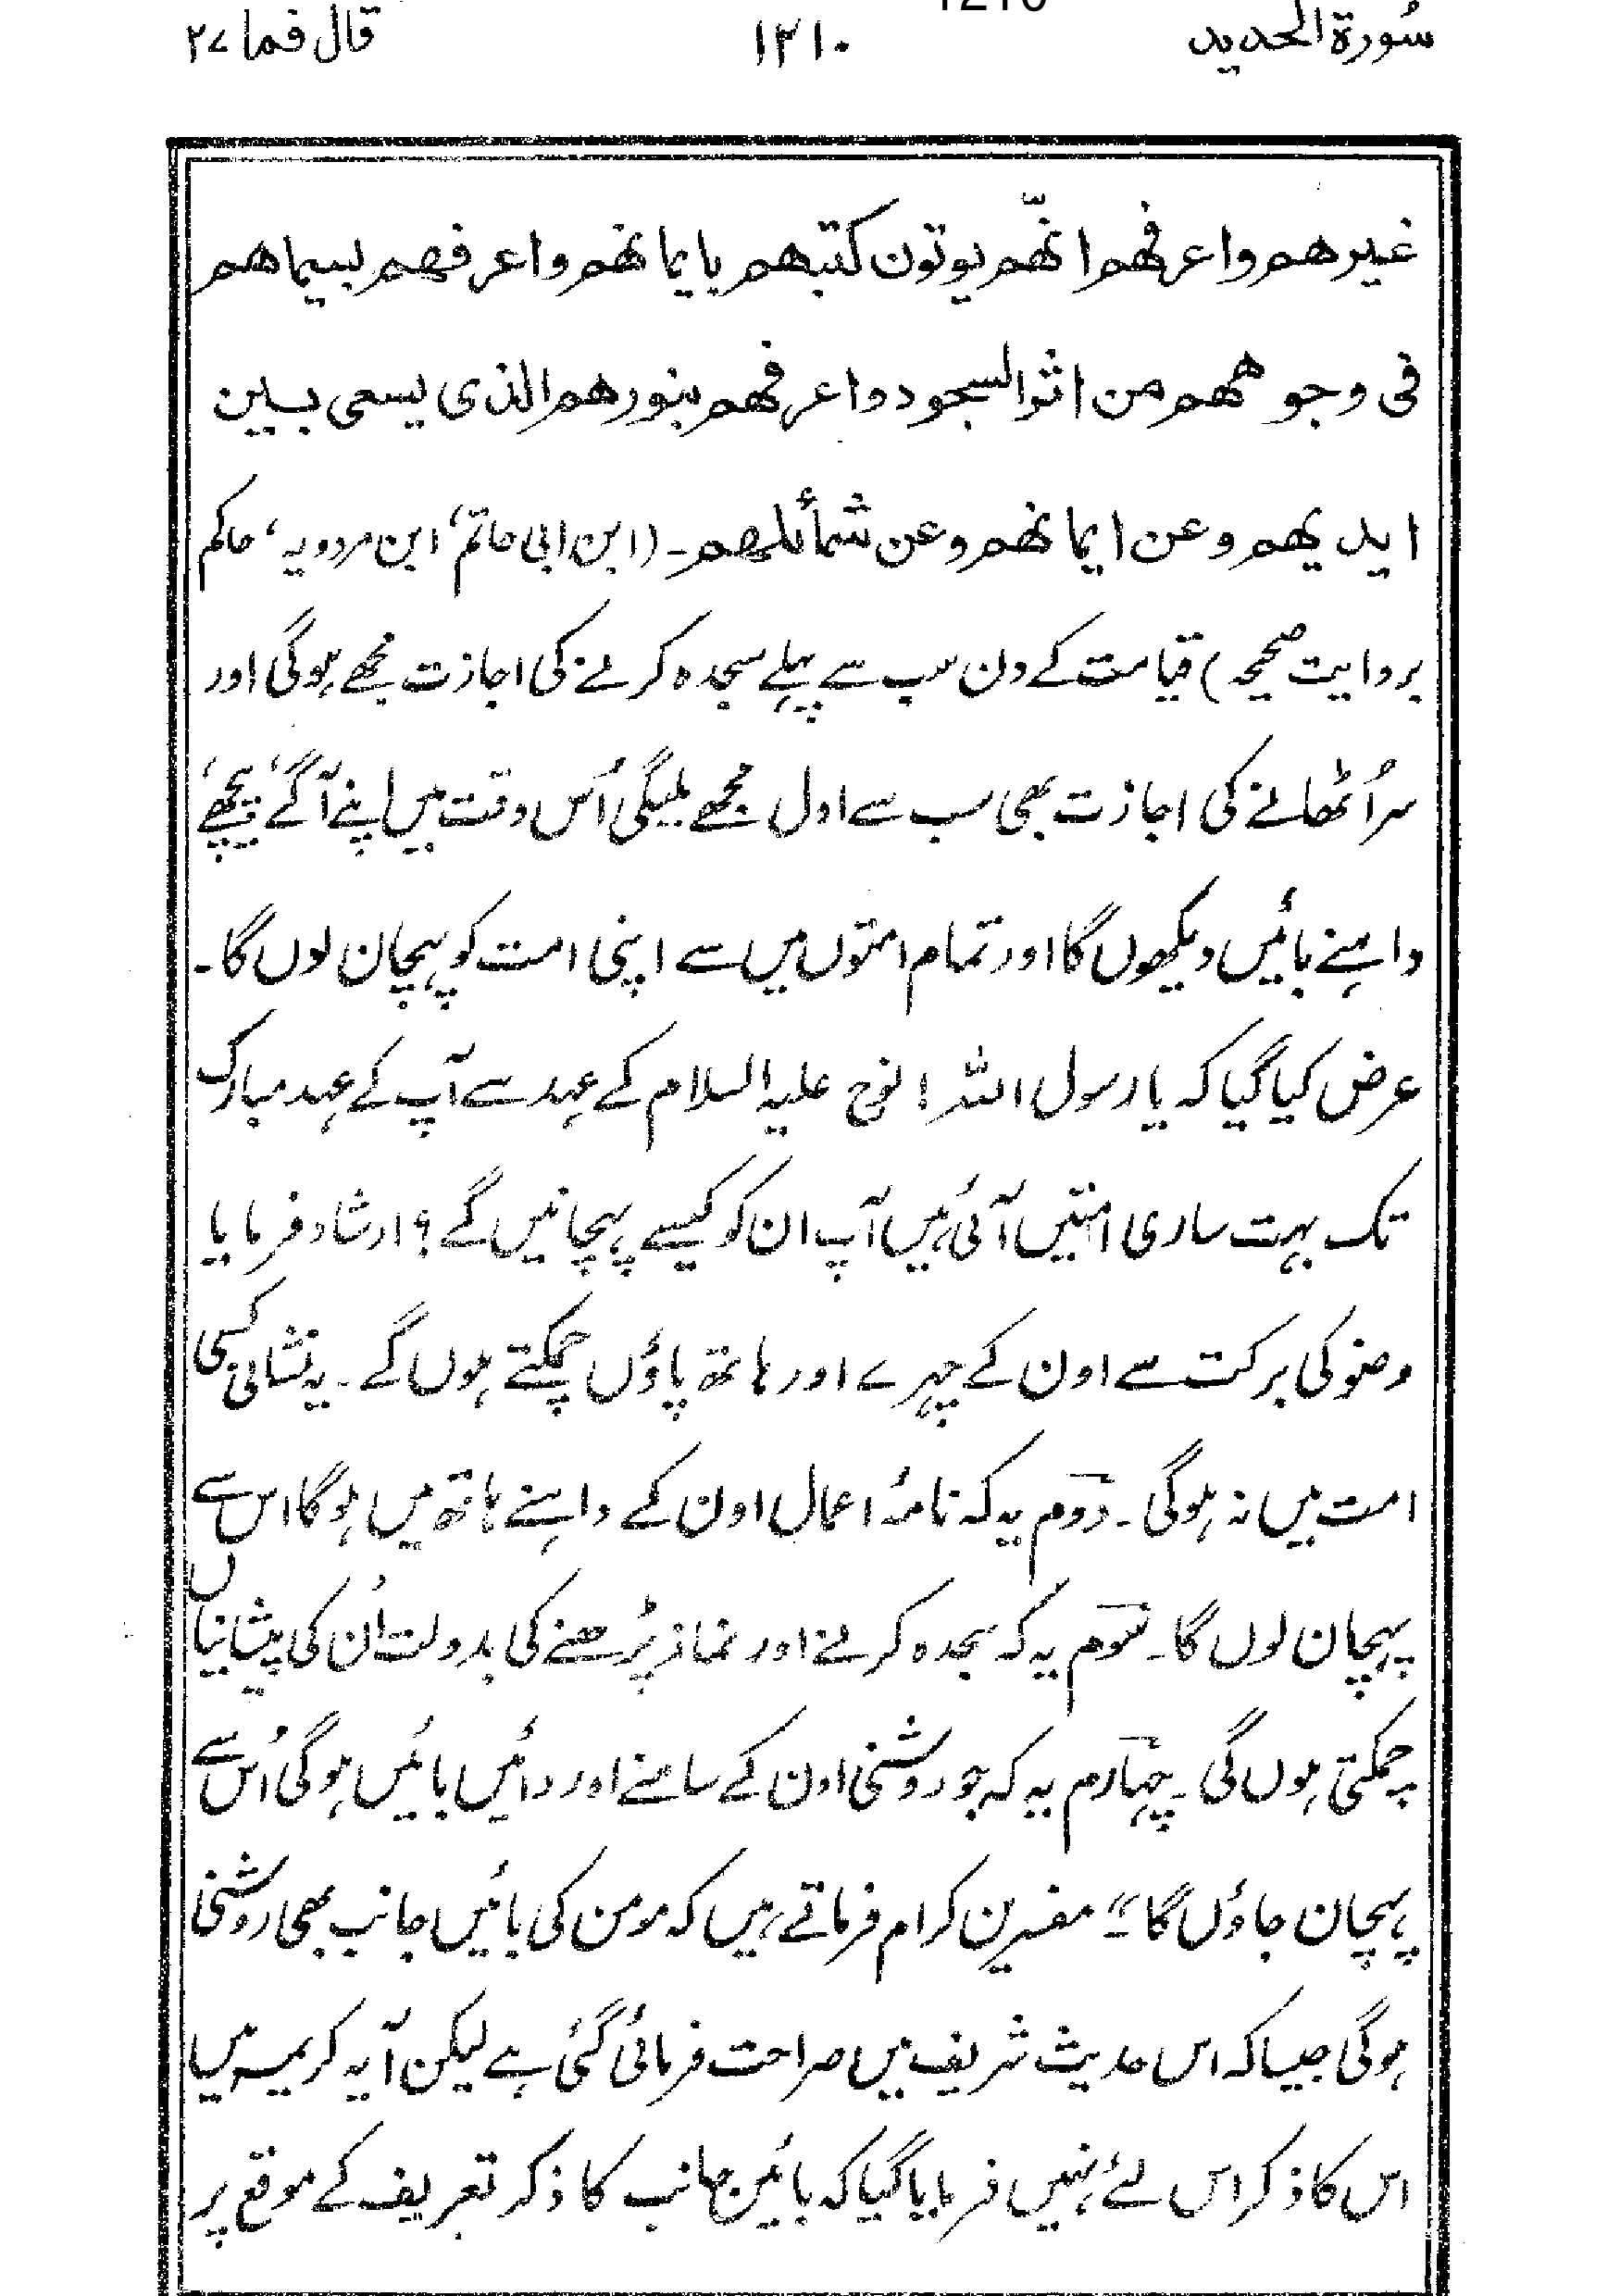 سُورة الحدید ۱۲۱۰ قال فما ۲۷
غیرھم واعرفھم انّھم یوتون کتبھم بایمانھم واعرفھم بسیماھم
فی وجوھھم من اثرالسجود واعرفھم بنورھم الذی یسعی بین
ایدیھم وعن ایمانھم وعن شمائلھم۔ (ابن ابی حاتم، ابن مردویہ، حاکم
بروایت صحیحہ) قیامت کے دن سب سے پہلے سجدہ کرنے کی اجازت مجھے ہوگی اور
سر اُٹھانے کی اجازت بھی سب سے اول مجھے ملیگی اُس وقت میں اپنے آگے، پیچھے،
داہنے بائیں دیکھوں گا اور تمام امتوں میں سے اپنی امت کو پہچان لوں گا۔
عرض کیا گیا کہ یا رسول اللہ! نوح علیہ السلام کے عہد سے آپ کے عہد مبارک
تک بہت ساری امتیں آئی ہیں آپ ان کو کیسے پہچانیں گے؟ ارشاد فرمایا
وضو کی برکت سے اون کے چہرے اور ہاتھ پاؤں چمکتے ہوں گے۔ یہ نشانی کسی
امت میں نہ ہوگی۔ دوم یہ کہ نامۂ اعمال اون کے داہنے ہاتھ میں ہوگا اس سے
پہچان لوں گا۔ سوم یہ کہ سجدہ کرنے اور نماز پڑھنے کی بدولت اُن کی پیشانیاں
چمکتی ہوں گی۔ چہارم یہ کہ جو روشنی اون کے سامنے اور دائیں بائیں ہوگی اُس سے
پہچان جاؤں گا“ مفسرین کرام فرماتے ہیں کہ مومن کی بائیں جانب بھی روشنی
ہوگی جیسا کہ اس حدیث شریف میں صراحت فرمائی گئی ہے لیکن آیہ کریمہ میں
اس کا ذکر اس لئے نہیں فرمایا گیا کہ بائیں جانب کا ذکر تعریف کے موقع پر